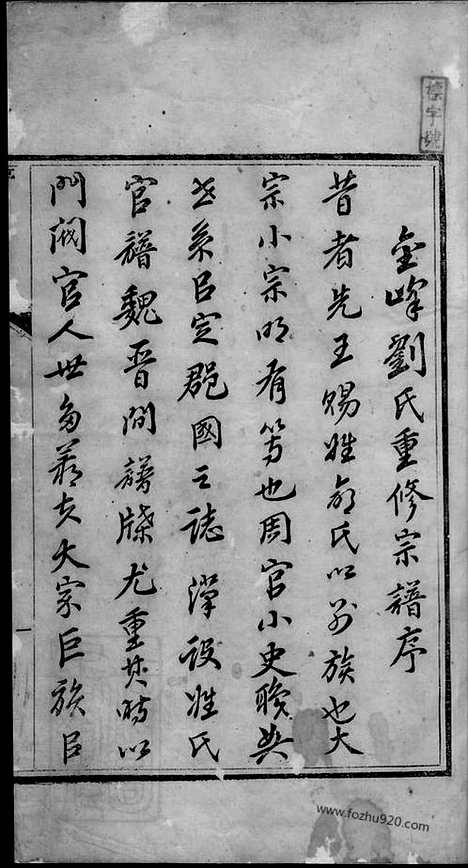 金峰劉氏重修宗譜序
昔者先王賜姓命氏以別族也大
宗小宗明有等也周官小史職典
世系以定郡國之誌漢設姓氏
官譜魏晉間譜牒尤重其時以
門閥官人世多著其大家巨族以
字號
www.fozhu920.com